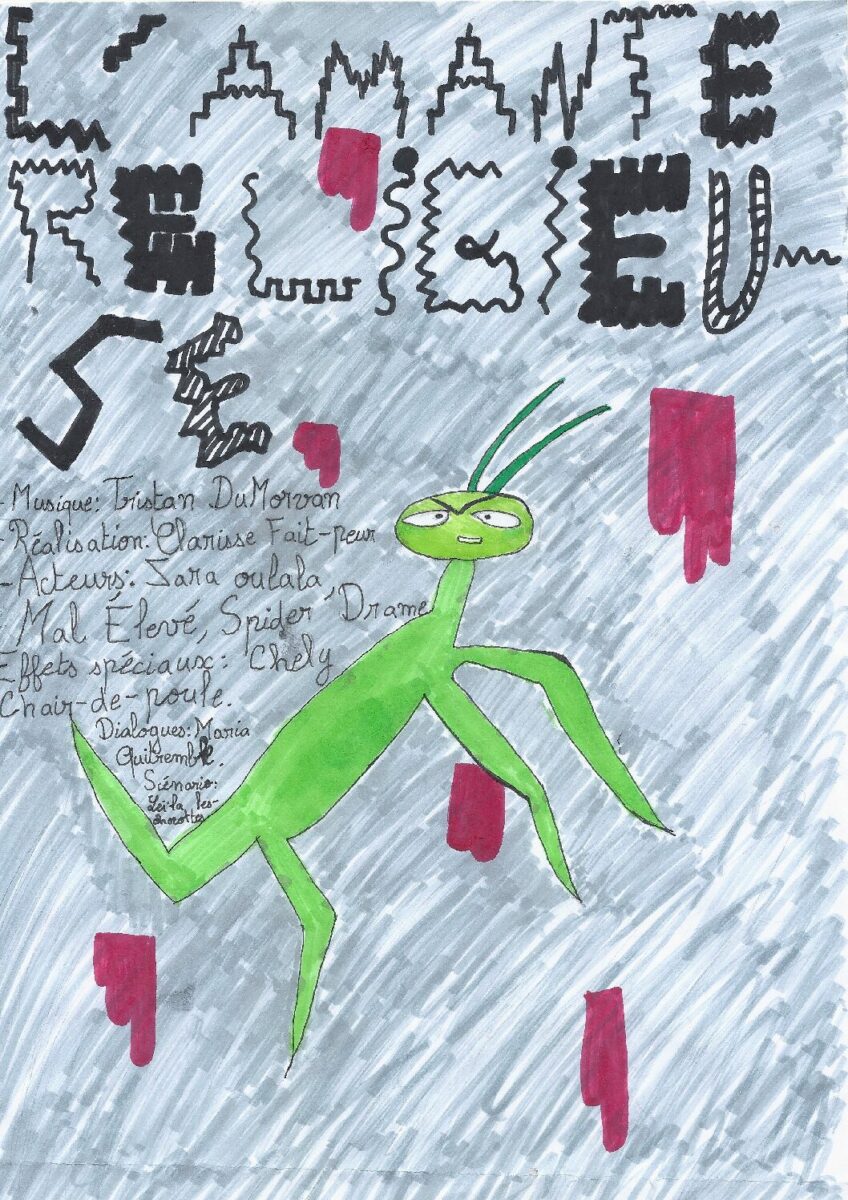 L'AMANTE
RELIGIEU-
SE
- Musique: Tristan DuMorvan
- Réalisation: Clarisse Fait-peur
- Acteurs: Sara oulala,
Mal Élevé, Spider Drame
Effets spéciaux: Chely
Chair-de-poule.
Dialogues: Maria
Quitremble.
Scénario:
Leïla les-
chocottes